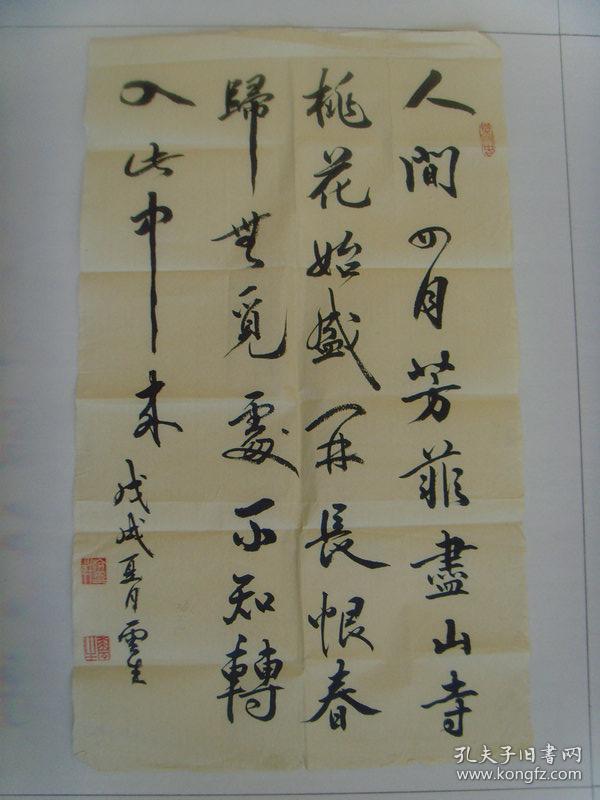 人間四月芳菲盡山寺
桃花始盛開長恨春
歸無覓處不知轉
入此中來
戊戌夏月雲生
孔夫子旧书网
www.kongfz.com